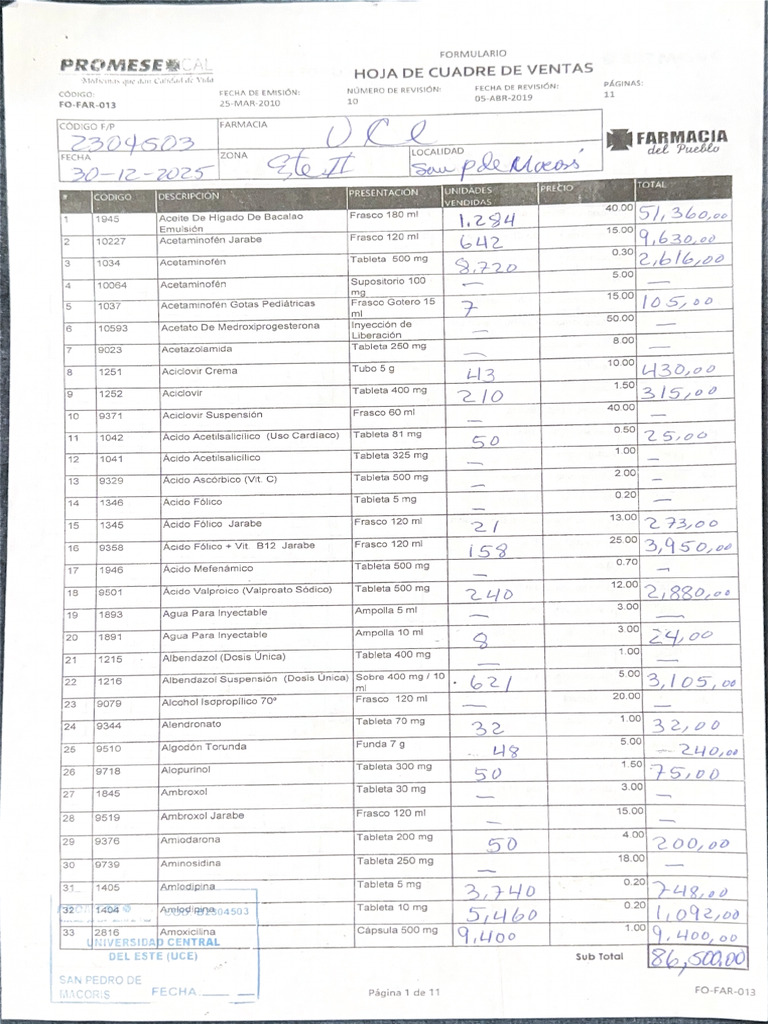 FORMULARIO
PROMESE CAL
Medicinas que dan Calidad de Vida
HOJA DE CUADRE DE VENTAS
CÓDIGO: FECHA DE EMISIÓN: NÚMERO DE REVISIÓN: FECHA DE REVISIÓN: PÁGINAS:
FO-FAR-013 25-MAR-2010 10 05-ABR-2019 11
CÓDIGO F/P FARMACIA
2304503 UCE
FARMACIA
del Pueblo
FECHA ZONA LOCALIDAD
30-12-2025 Este II San P de Macorís
# CODIGO DESCRIPCIÓN PRESENTACION UNIDADES VENDIDAS PRECIO TOTAL
1 1945 Aceite De Higado De Bacalao Emulsión Frasco 180 ml 1.284 40.00 51,360,00
2 10227 Acetaminofén Jarabe Frasco 120 ml 642 15.00 9,630,00
3 1034 Acetaminofén Tableta 500 mg 8,720 0.30 2,616,00
4 10064 Acetaminofén Supositorio 100 mg — 5.00 —
5 1037 Acetaminofén Gotas Pediátricas Frasco Gotero 15 ml 7 15.00 105,00
6 10593 Acetato De Medroxiprogesterona Inyección de Liberación — 50.00 —
7 9023 Acetazolamida Tableta 250 mg — 8.00 —
8 1251 Aciclovir Crema Tubo 5 g 43 10.00 430,00
9 1252 Aciclovir Tableta 400 mg 210 1.50 315,00
10 9371 Aciclovir Suspensión Frasco 60 ml — 40.00 —
11 1042 Ácido Acetilsalicílico (Uso Cardíaco) Tableta 81 mg 50 0.50 25,00
12 1041 Ácido Acetilsalicílico Tableta 325 mg — 1.00 —
13 9329 Ácido Ascórbico (Vit. C) Tableta 500 mg — 2.00 —
14 1346 Ácido Fólico Tableta 5 mg — 0.20 —
15 1345 Ácido Fólico Jarabe Frasco 120 ml 21 13.00 273,00
16 9358 Ácido Fólico + Vit. B12 Jarabe Frasco 120 ml 158 25.00 3,950,00
17 1946 Ácido Mefenámico Tableta 500 mg — 0.70 —
18 9501 Ácido Valproico (Valproato Sódico) Tableta 500 mg 240 12.00 2,880,00
19 1893 Agua Para Inyectable Ampolla 5 ml — 3.00 —
20 1891 Agua Para Inyectable Ampolla 10 ml 8 3.00 24,00
21 1215 Albendazol (Dosis Única) Tableta 400 mg — 1.00 —
22 1216 Albendazol Suspensión (Dosis Única) Sobre 400 mg / 10 ml 621 5.00 3,105,00
23 9079 Alcohol Isopropílico 70ª Frasco 120 ml — 20.00 —
24 9344 Alendronato Tableta 70 mg 32 1.00 32,00
25 9510 Algodón Torunda Funda 7 g 48 5.00 240,00
26 9718 Alopurinol Tableta 300 mg 50 1.50 75,00
27 1845 Ambroxol Tableta 30 mg — 3.00 —
28 9519 Ambroxol Jarabe Frasco 120 ml — 15.00 —
29 9376 Amiodarona Tableta 200 mg 50 4.00 200,00
30 9739 Aminosidina Tableta 250 mg — 18.00 —
31 1405 Amlodipina Tableta 5 mg 3,740 0.20 748,00
32 1404 Amlodipina Tableta 10 mg 5,460 0.20 1,092,00
33 2816 Amoxicilina Cápsula 500 mg 9,400 1.00 9,400,00
Sub Total 86,500.00
2304503
UNIVERSIDAD CENTRAL
DEL ESTE (UCE)
SAN PEDRO DE
MACORIS FECHA
Página 1 de 11
FO-FAR-013